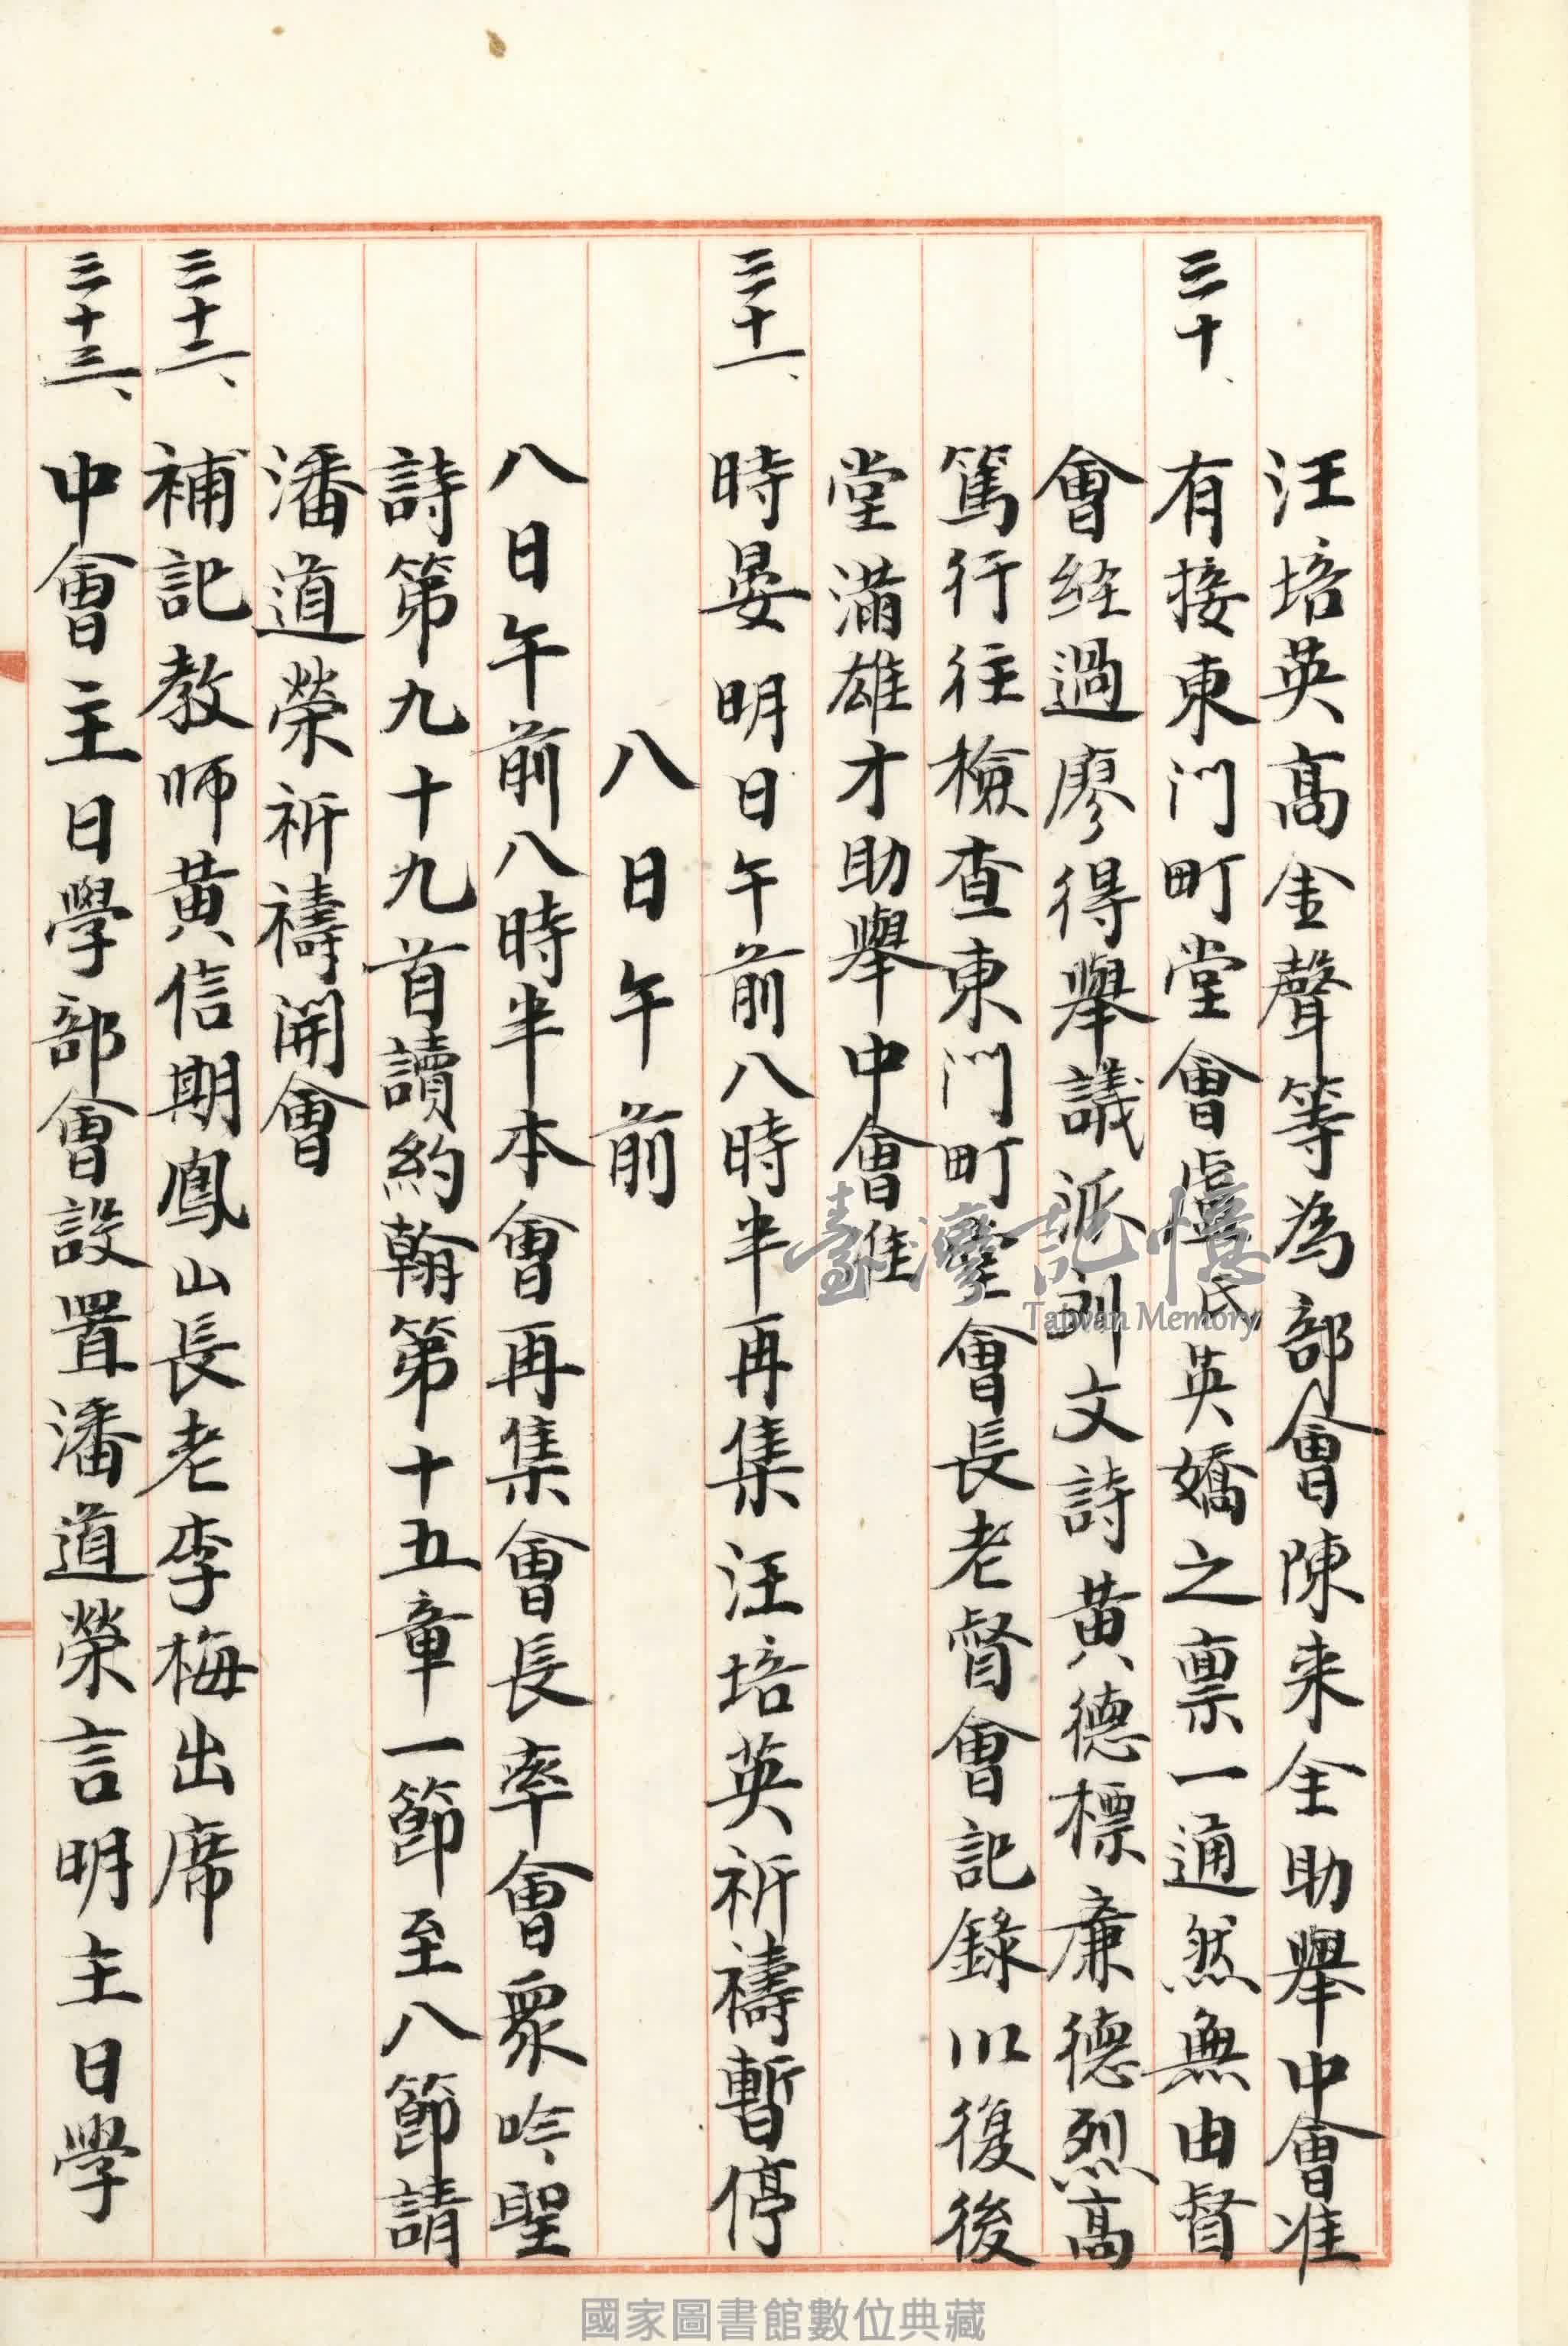 汪培英高金聲等為部會陳來全助舉中會准
三十、有接東門町堂會盧氏英嬌之禀一通然無由督
會經過廖得舉議派劉文詩黃德標廉德烈高
篤行往檢查東門町堂會長老督會記錄以復後
堂滿雄才助舉中會准
三十一、時晏明日午前八時半再集汪培英祈禱暫停
八日午前
八日午前八時半本會再集會長率會眾吟聖
詩第九十九首讀約翰第十五章一節至八節請
潘道榮祈禱開會
三十二、補記教师黃信期鳳山長老李梅出席
三十三、中會主日學部會設置潘道榮言明主日學
臺灣記憶
Taiwan Memory
國家圖書館數位典藏